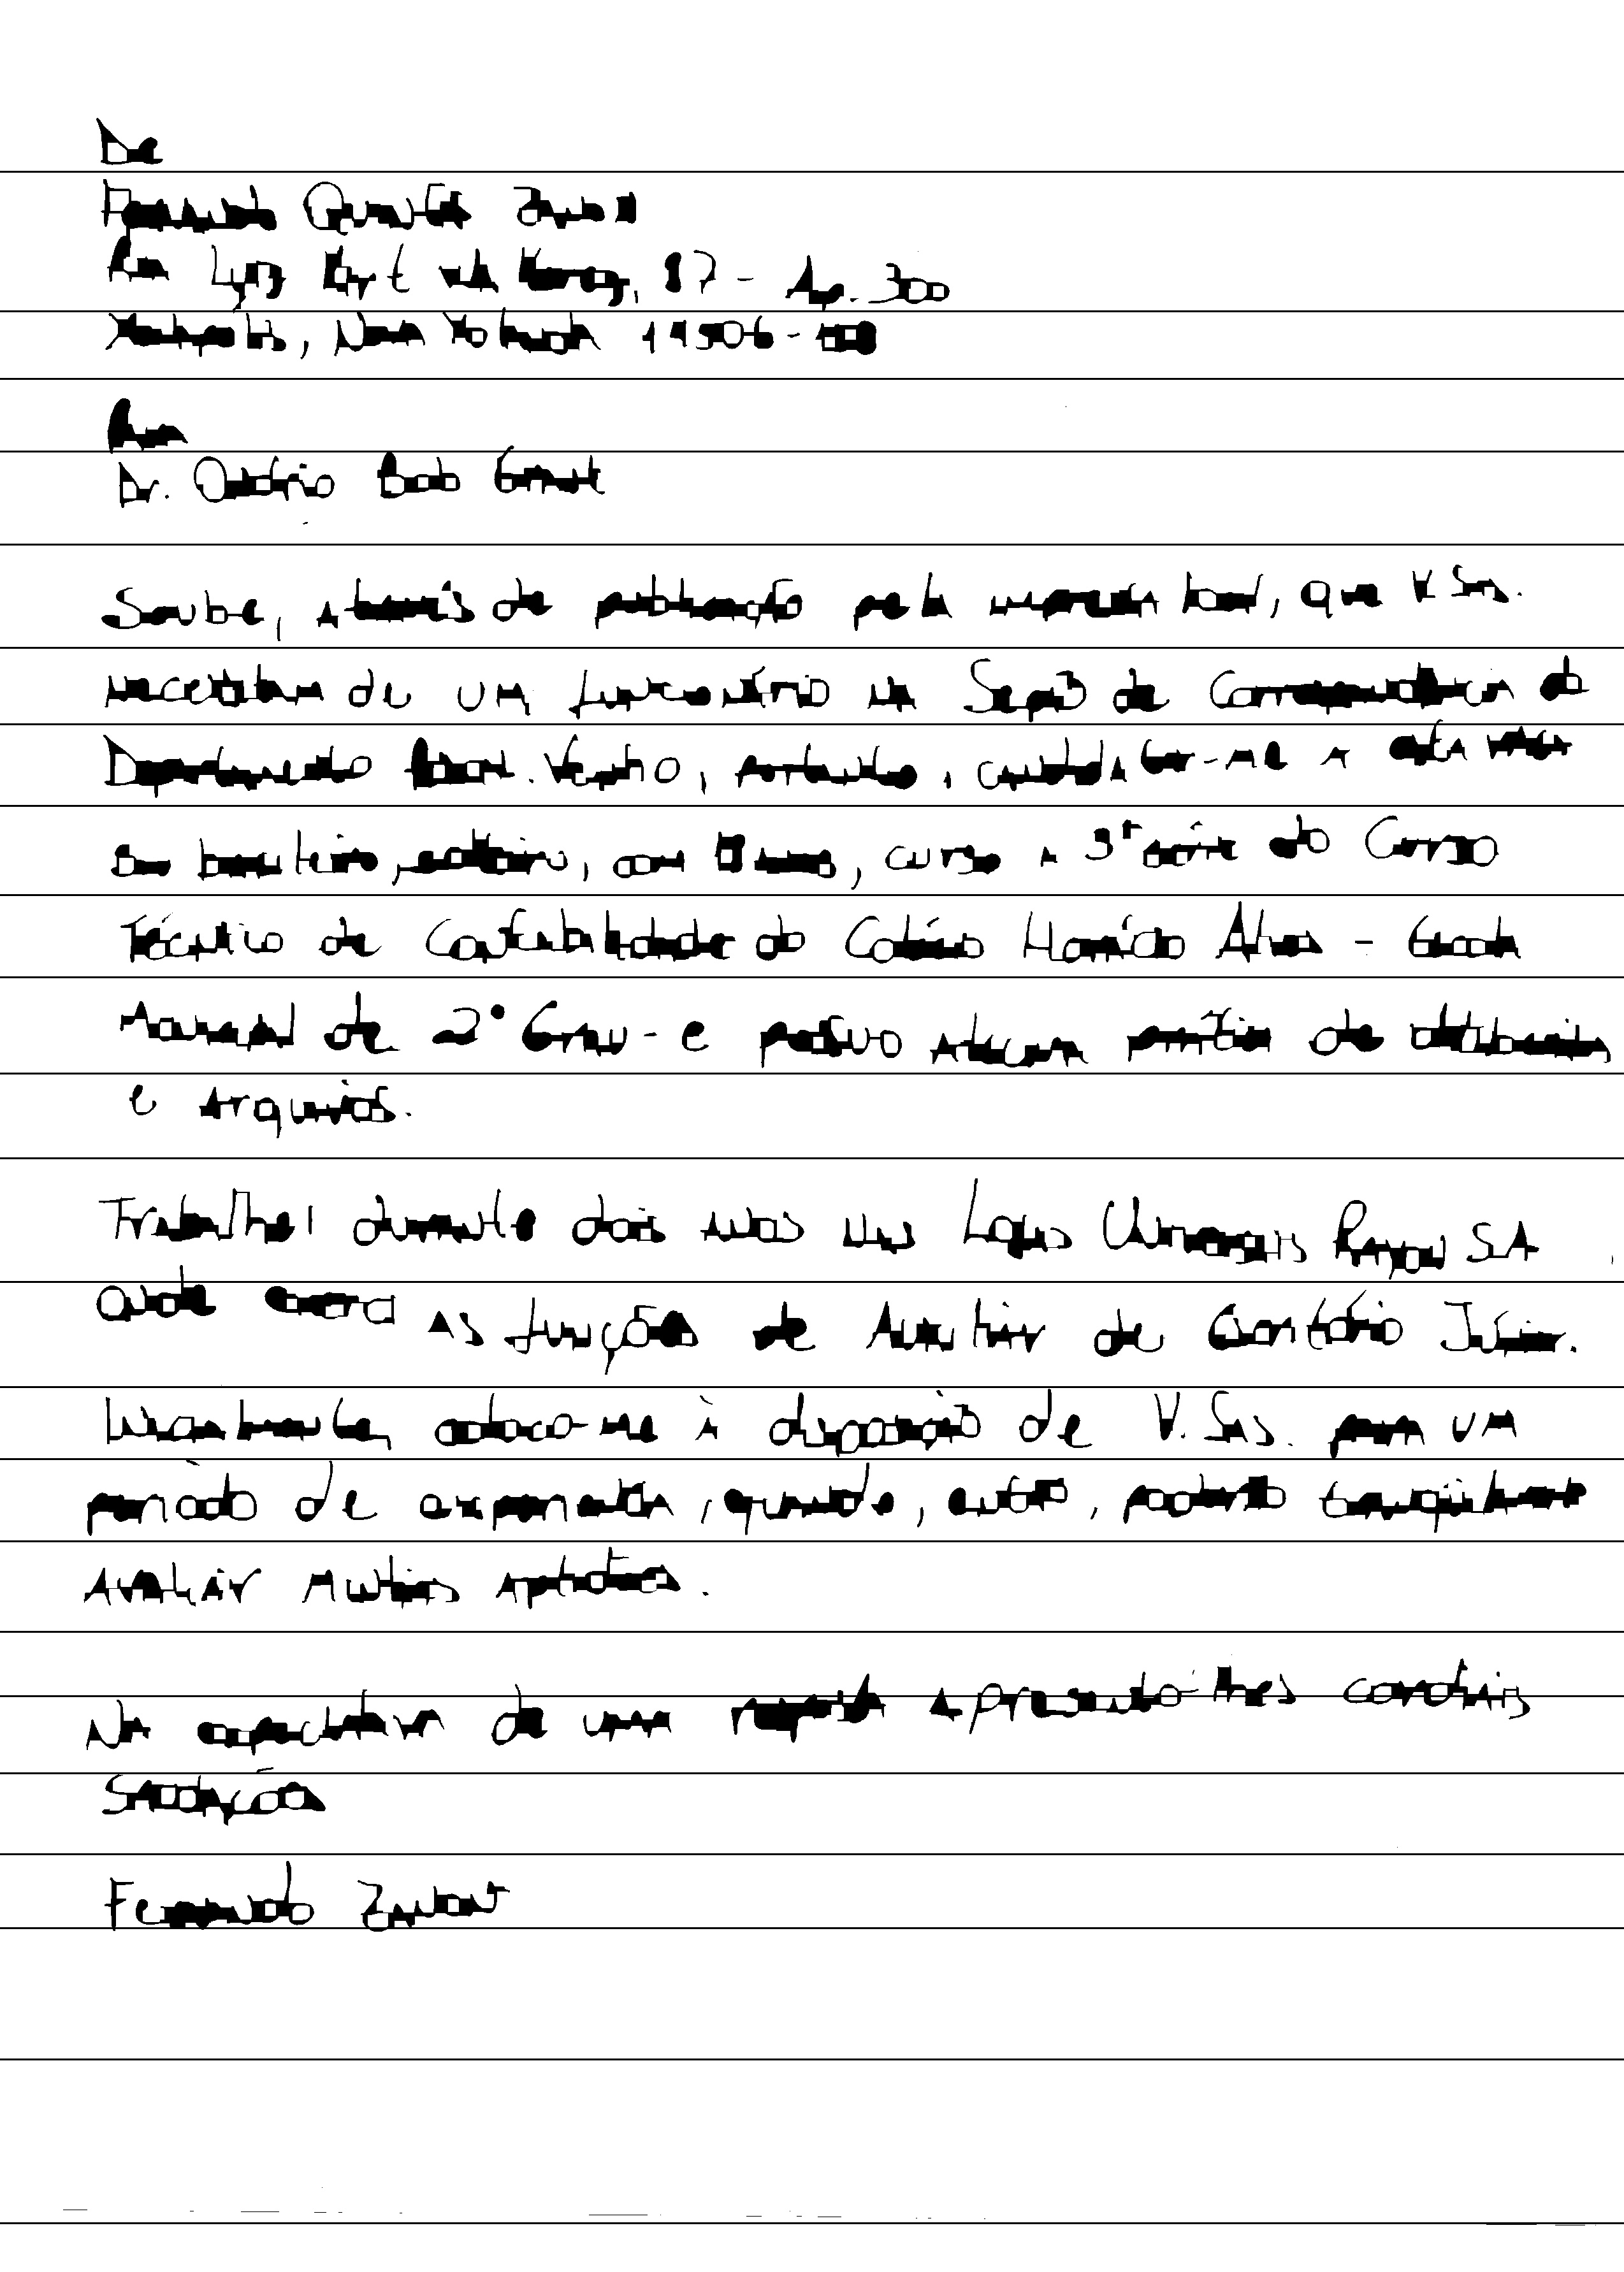 De
Fernando Quartes Zanon
Rua Lyns 87 - Ap. 300
Nova 19506-
Para
Dr. Onofrio Bob
Soube, através de publicação pela imprensa local, que V. Sas.
necessitam de um funcionário na Seção de Correspondência do
Departamento Venho, portanto, candidatar-me a esta vaga
Sou brasileiro, solteiro, com anos, curso a 3ª série do Curso
Técnico de Contabilidade do Colégio Horácio Alves - Escola
Manual de 2º Grau - e possuo alguma prática de
e arquivos.
Trabalhei durante dois anos nas Lojas S.A
onde exerci as funções de Auxiliar de Escritório Júnior.
coloco-me à disposição de V. Sas. para um
período de experiência, quando, então, poderão
avaliar minhas aptidões.
Na expectativa de uma resposta apresento-lhes cordiais
saudações
Fernando Zanon